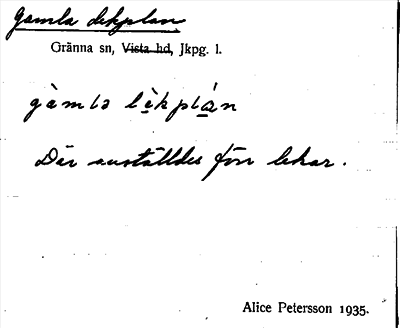 Gamla lekplan
Gränna sn, Vista hd, Jkpg. l.
gàmla lè̱kplá̱n
Där anställdes förr lekar.
Alice Petersson 1935.